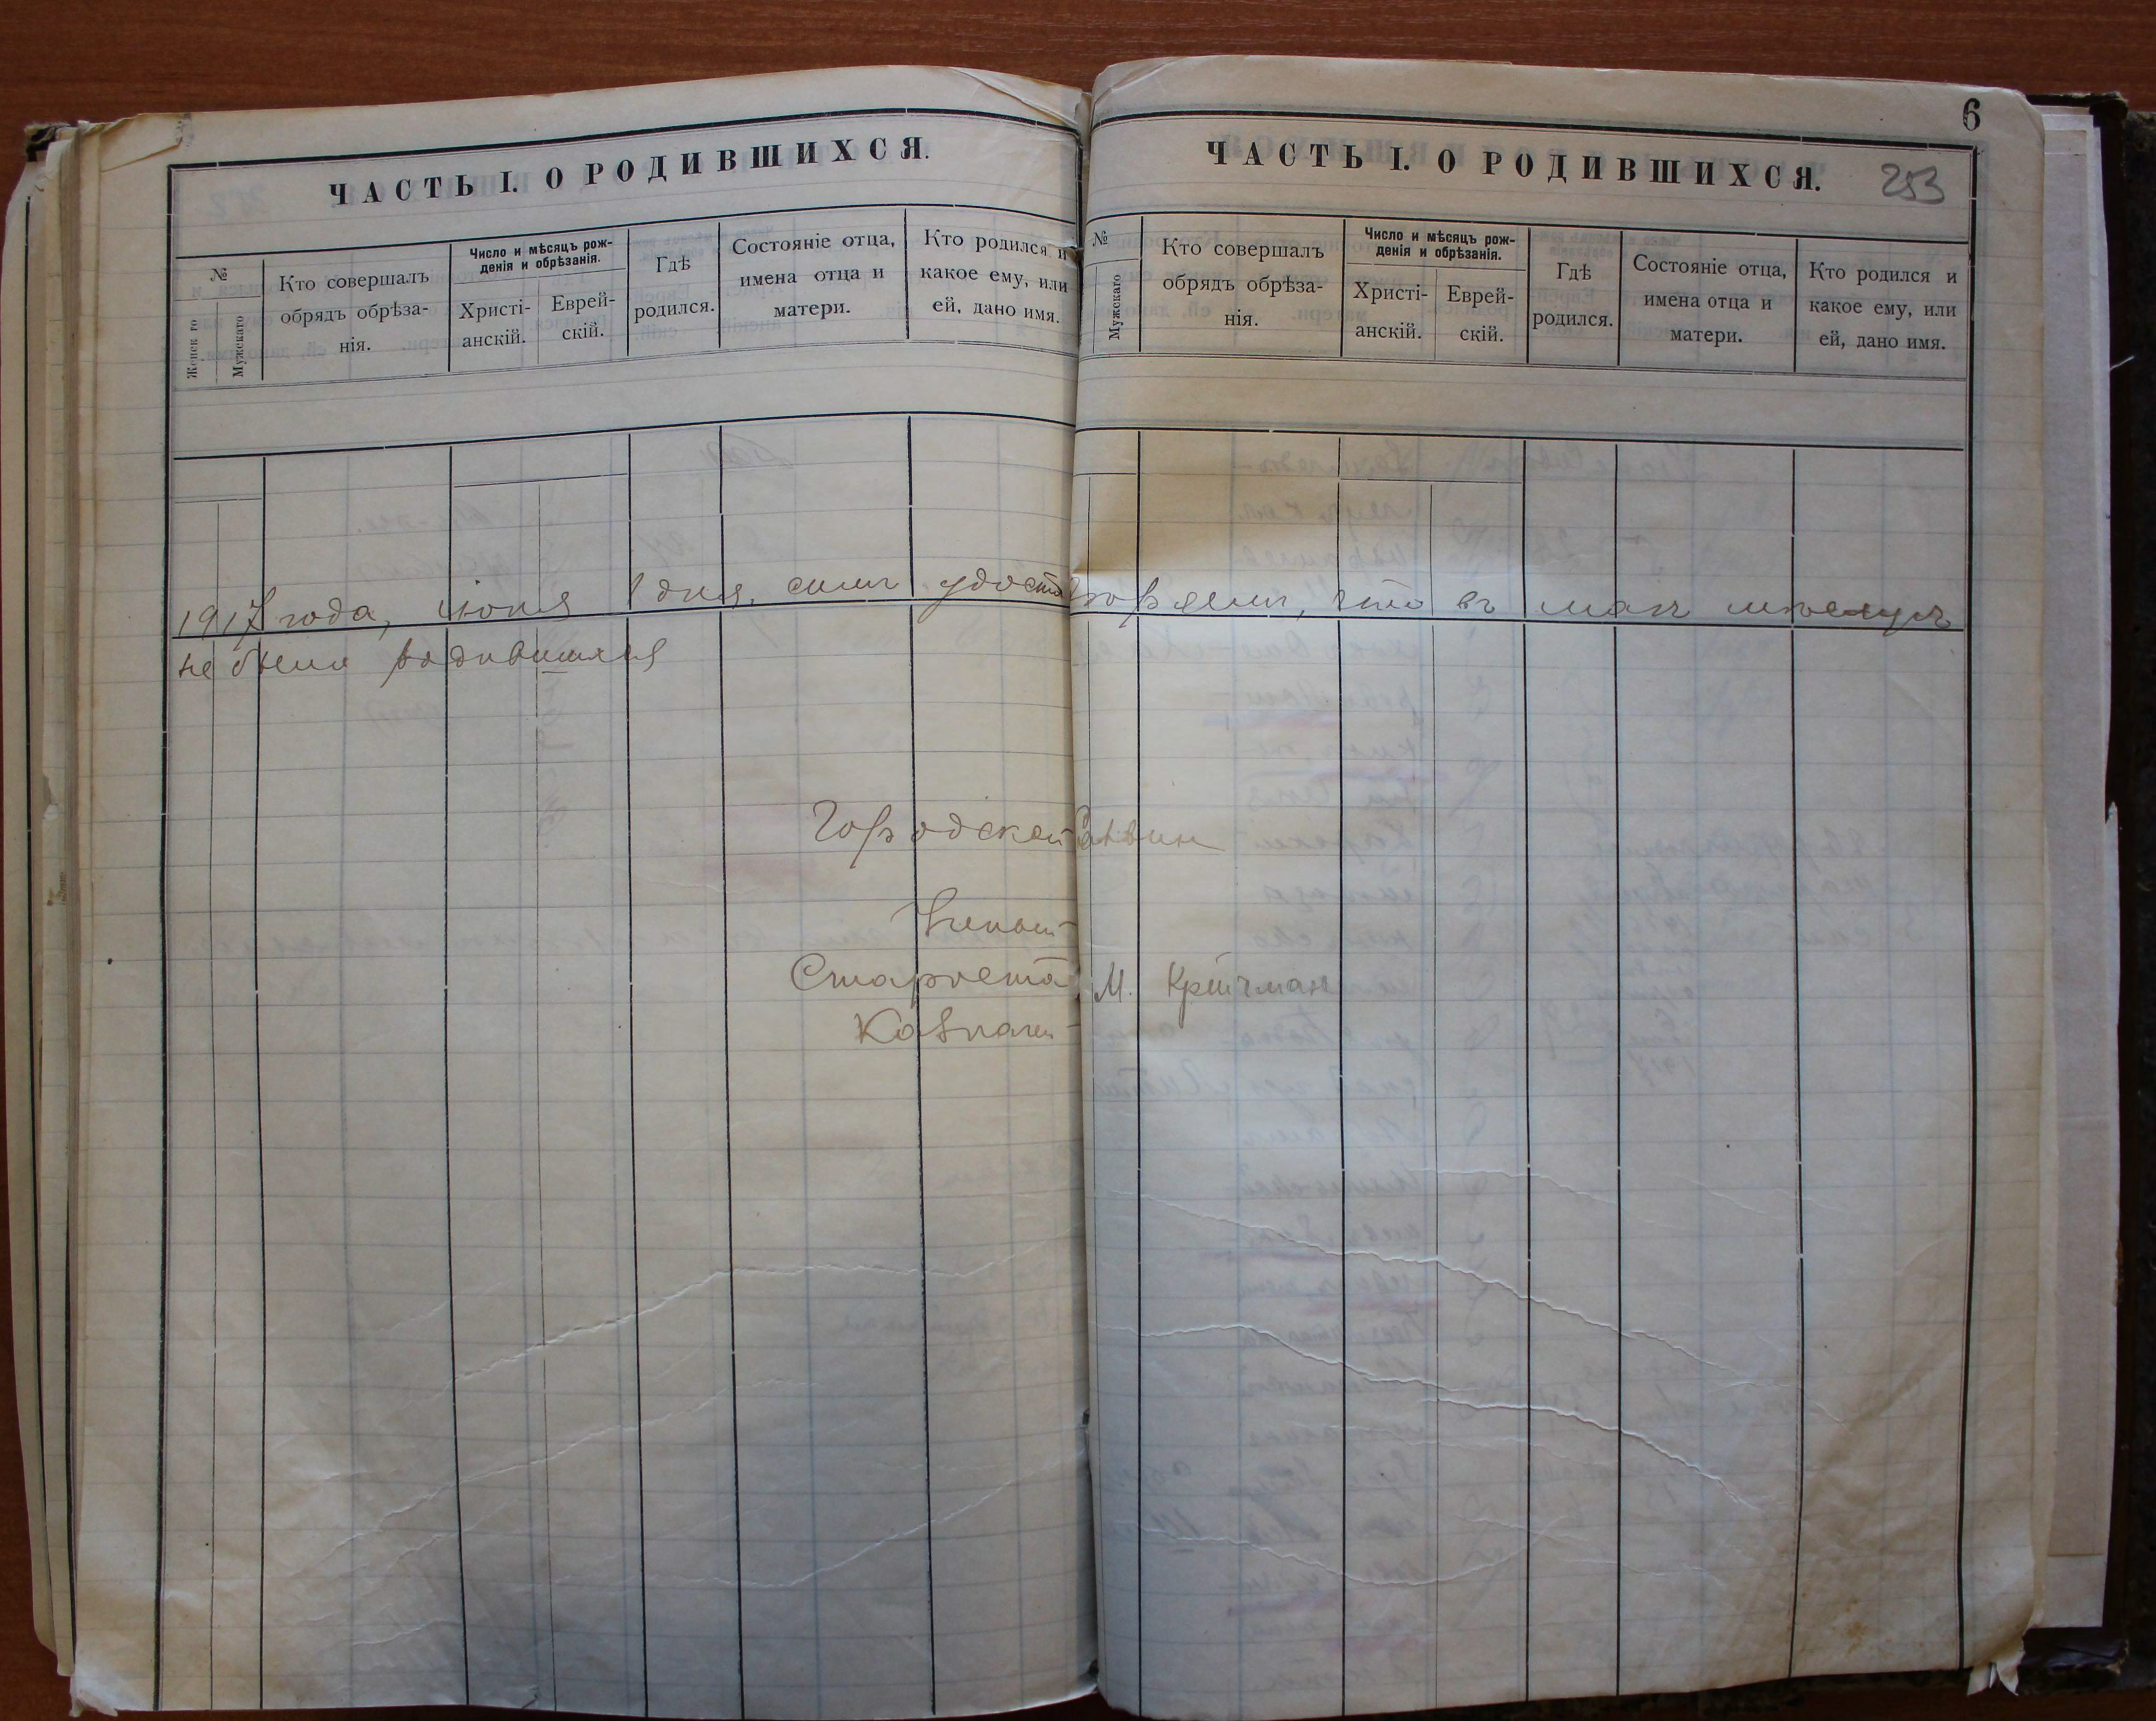 ЧАСТЬ I. О РОДИВШИХСЯ.
№
Женск го
Мужскаго
Кто совершалъ
обрядъ обрѣза-
нія.
Число и мѣсяцъ рож-
денія и обрѣзанія.
Христі-
анскій.
Еврей-
скій.
Гдѣ
родился.
Состояніе отца,
имена отца и
матери.
Кто родился и
какое ему, или
ей, дано имя.
6
ЧАСТЬ I. О РОДИВШИХСЯ.
253
№
Мужскаго
Кто совершалъ
обрядъ обрѣза-
нія.
Число и мѣсяцъ рож-
денія и обрѣзанія.
Христі-
анскій.
Еврей-
скій.
Гдѣ
родился.
Состояніе отца,
имена отца и
матери.
Кто родился и
какое ему, или
ей, дано имя.
1917 года, июня 1 дня, симъ удостоверяемъ, что въ мае месяце
не были родившихся
Городской Раввин
Ученый
Староста М. Крейчман
Казначей